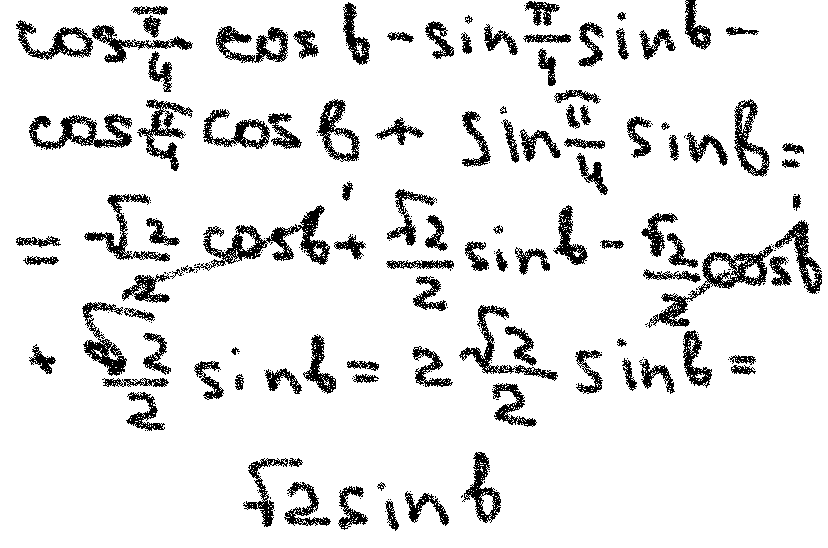 cos π/4 cos b - sin π/4 sin b -
cos π/4 cos b + sin π/4 sin b =
= √2/2 cos b + √2/2 sin b - √2/2 cos b
+ √2/2 sin b = 2 √2/2 sin b =
√2 sin b